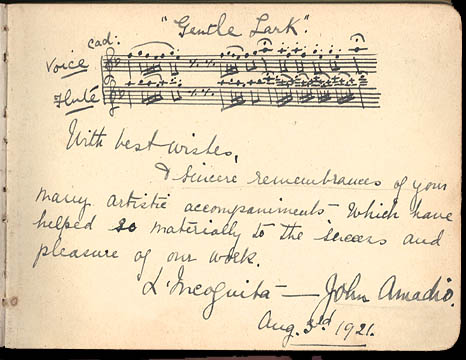 "Gentle Lark".
cad:
Voice
Flute
With best wishes,
& sincere remembrances of your
many artistic accompaniments which have
helped so materially to the success and
pleasure of our work.
L'Incognita — John Amadio.
Aug. 3rd 1921.